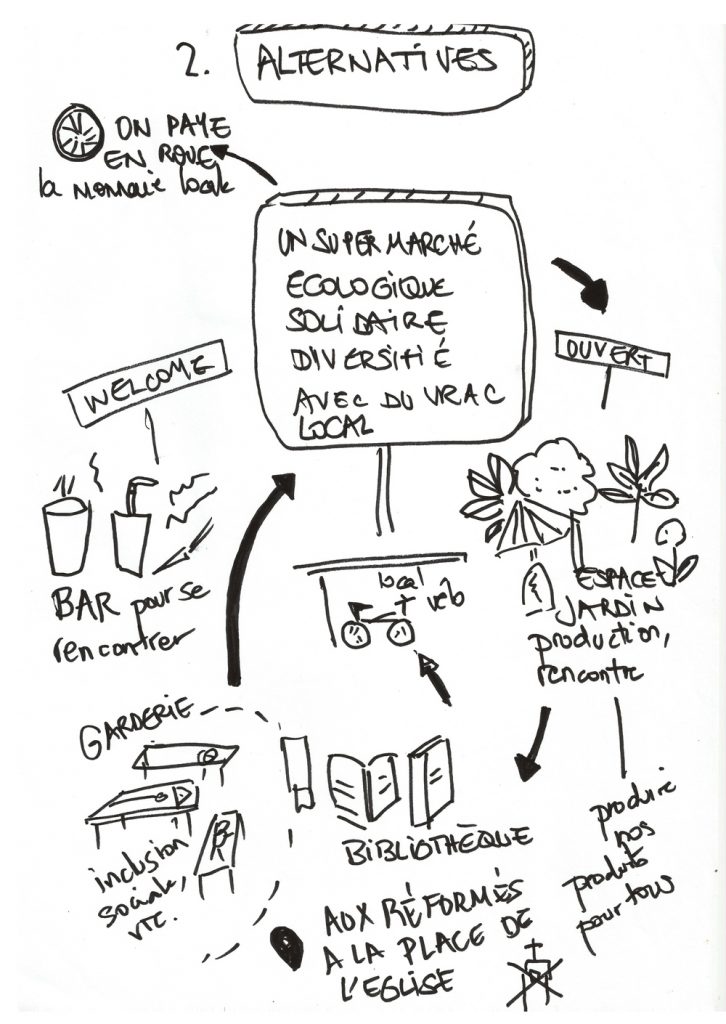 2. ALTERNATIVES
ON PAYE
EN ROUE
la monnaie locale
UN SUPERMARCHÉ
ECOLOGIQUE
SOLIDAIRE
DIVERSIFIÉ
AVEC DU VRAC
LOCAL
WELCOME
OUVERT
BAR pour se
rencontrer
local
vélo
ESPACE
JARDIN
production,
rencontre
GARDERIE
inclusion
sociale,
etc.
BIBLIOTHÈQUE
produire
nos
produits
pour tous
AUX RÉFORMÉS
A LA PLACE DE
L'EGLISE